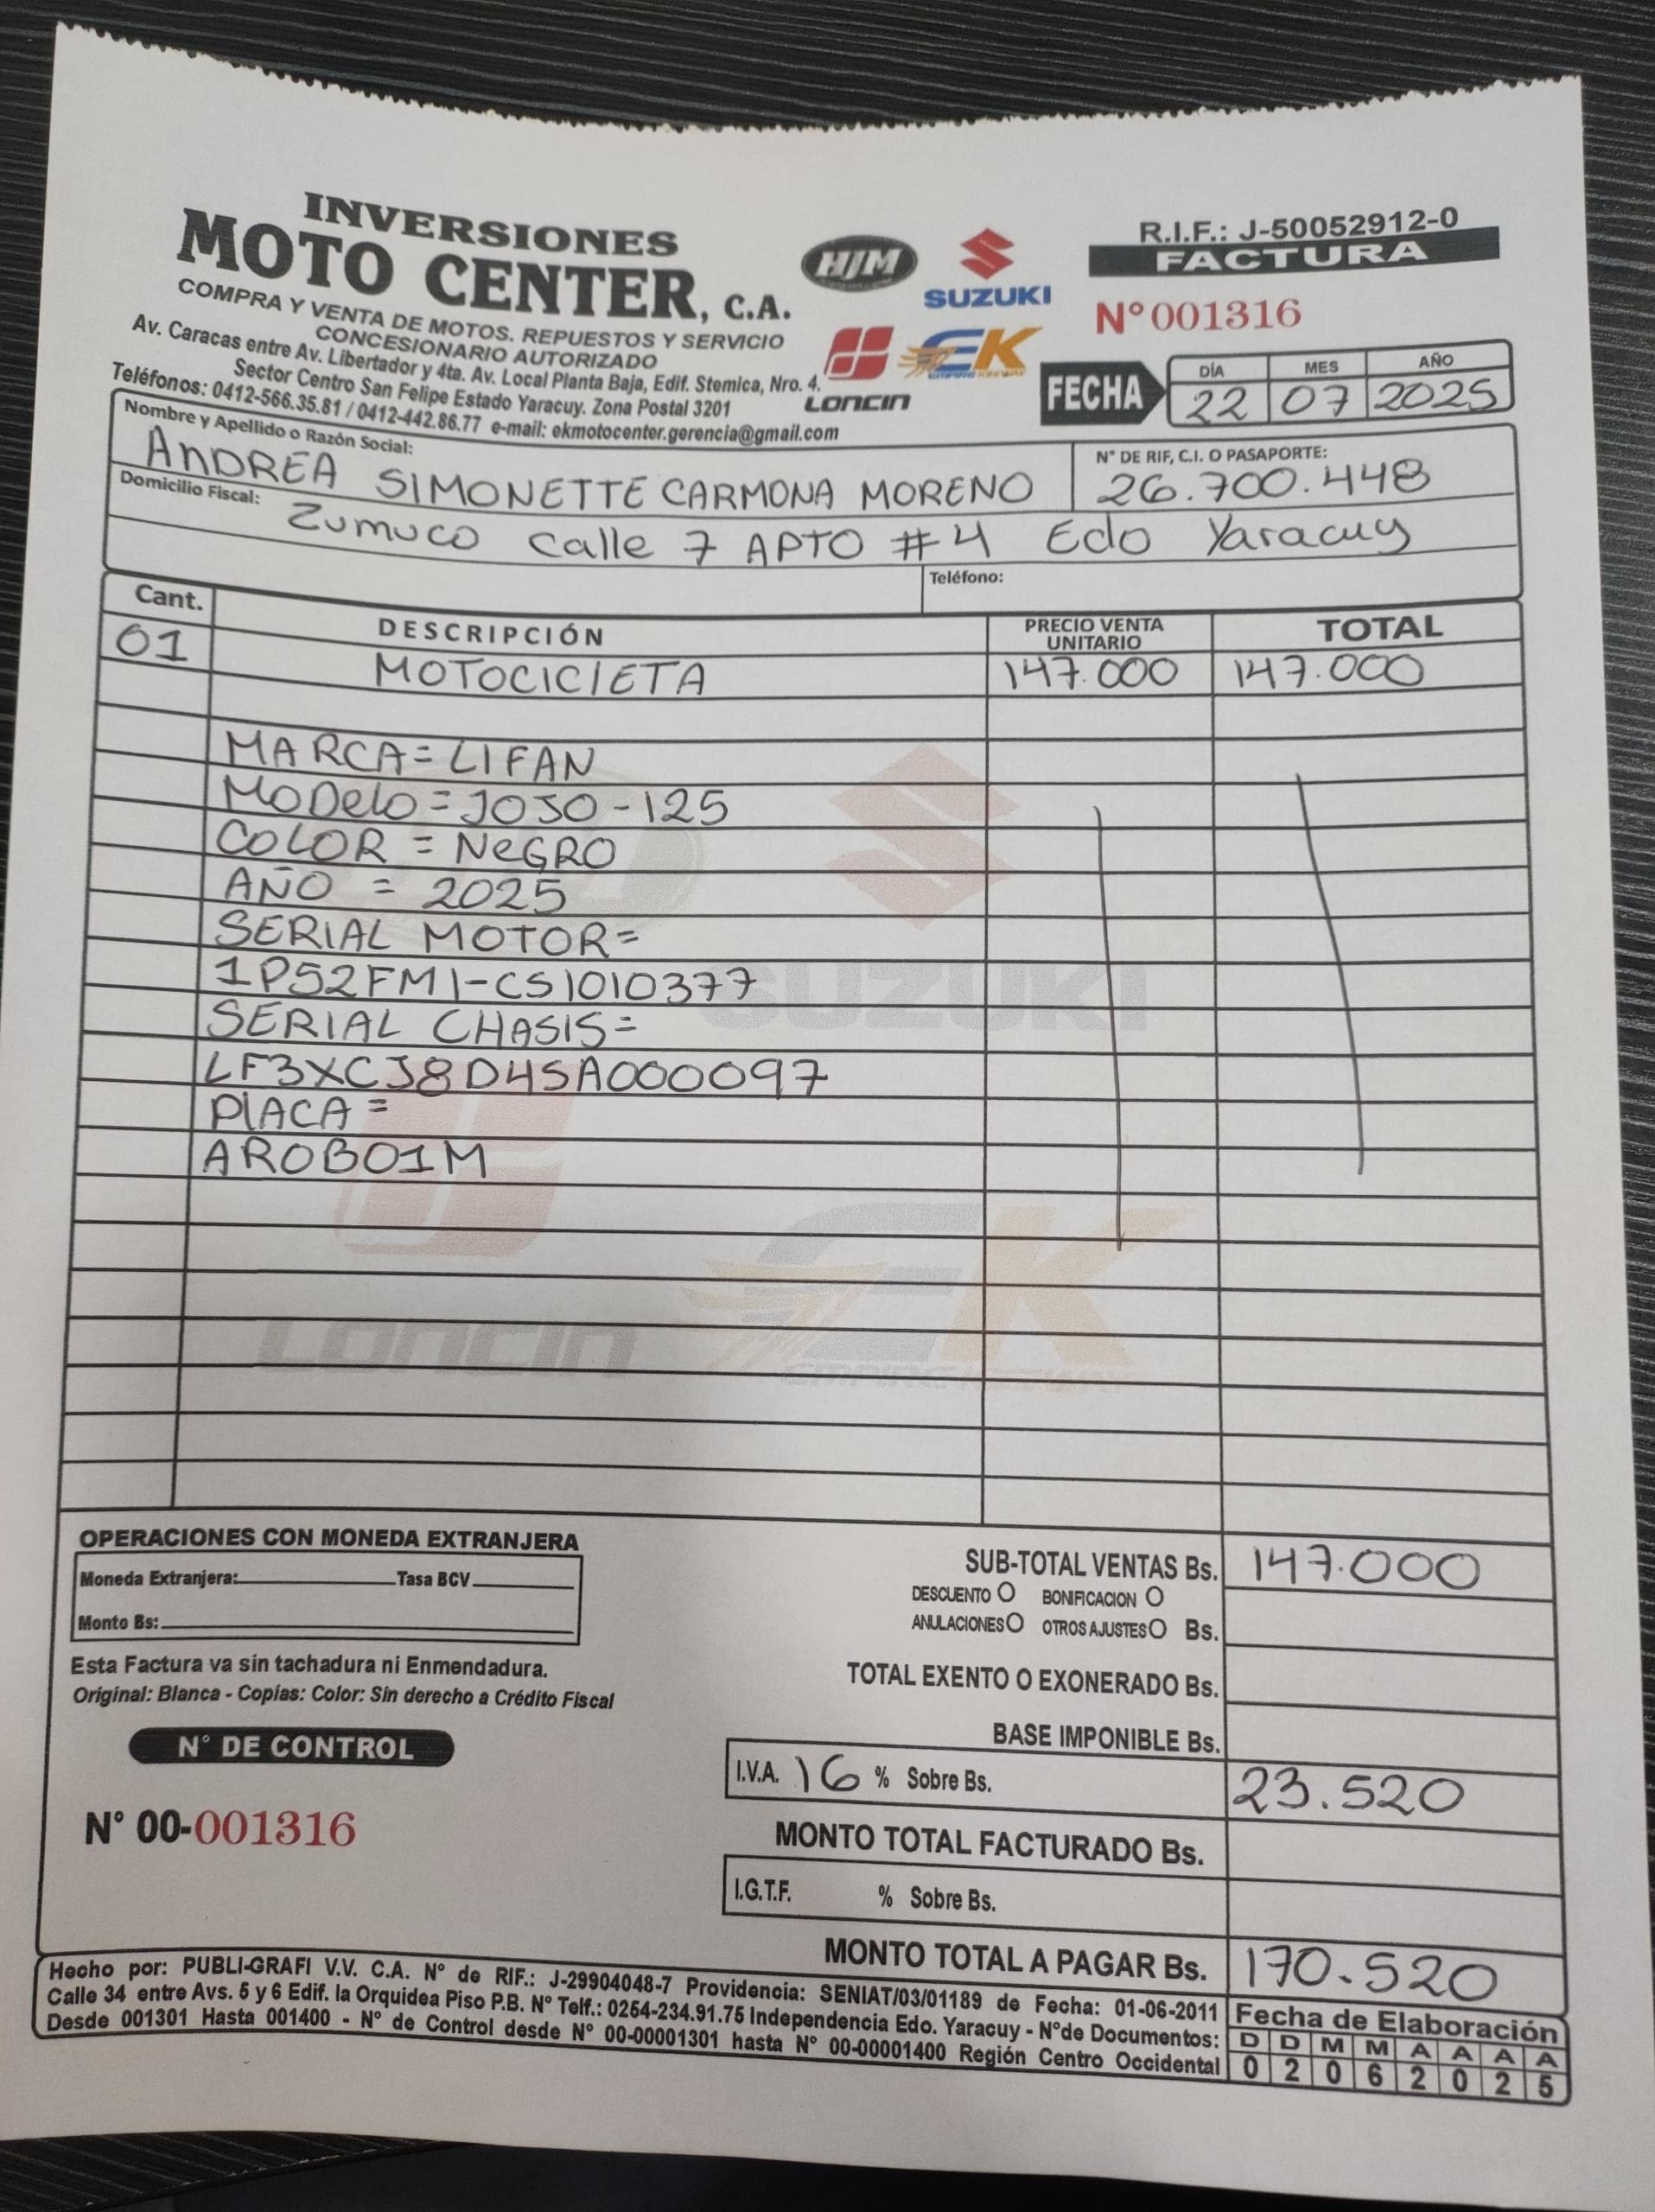 INVERSIONES
MOTO CENTER, C.A.
COMPRA Y VENTA DE MOTOS. REPUESTOS Y SERVICIO
CONCESIONARIO AUTORIZADO
Av. Caracas entre Av. Libertador y 4ta. Av. Local Planta Baja, Edif. Stemica, Nro. 4.
Sector Centro San Felipe Estado Yaracuy. Zona Postal 3201
Teléfonos: 0412-566.35.81 / 0412-442.86.77 e-mail: ekmotocenter.gerencia@gmail.com
HJM
SUZUKI
LONCIN
EK
EMPIRE KEEWAY
R.I.F.: J-50052912-0
FACTURA
N° 001316
FECHA
DÍA MES AÑO
22 07 2025
Nombre y Apellido o Razón Social:
ANDREA SIMONETTE CARMONA MORENO
N° DE RIF, C.I. O PASAPORTE:
26.700.448
Domicilio Fiscal:
Zumuco Calle 7 APTO #4 Edo Yaracuy
Teléfono:
Cant. DESCRIPCIÓN PRECIO VENTA UNITARIO TOTAL
01 MOTOCICLETA 147.000 147.000
MARCA = LIFAN
MODelo = JOJO-125
COLOR = NeGRO
AÑO = 2025
SERIAL MOTOR=
1P52FM1-CS1010377
SERIAL CHASIS=
LF3XCJ8D4SA000097
PLACA =
AR0B01M
SUZUKI
LONCIN
EK
EMPIRE KEEWAY
OPERACIONES CON MONEDA EXTRANJERA
Moneda Extranjera: Tasa BCV
Monto Bs:
Esta Factura va sin tachadura ni Enmendadura.
Original: Blanca - Copias: Color: Sin derecho a Crédito Fiscal
N° DE CONTROL
N° 00-001316
SUB-TOTAL VENTAS Bs. 147.000
DESCUENTO BONIFICACION
ANULACIONES OTROS AJUSTES Bs.
TOTAL EXENTO O EXONERADO Bs.
BASE IMPONIBLE Bs.
I.V.A. 16 % Sobre Bs. 23.520
MONTO TOTAL FACTURADO Bs.
I.G.T.F. % Sobre Bs.
MONTO TOTAL A PAGAR Bs. 170.520
Hecho por: PUBLI-GRAFI V.V. C.A. N° de RIF.: J-29904048-7 Providencia: SENIAT/03/01189 de Fecha: 01-06-2011
Calle 34 entre Avs. 5 y 6 Edif. la Orquidea Piso P.B. N° Telf.: 0254-234.91.75 Independencia Edo. Yaracuy - N°de Documentos:
Desde 001301 Hasta 001400 - N° de Control desde N° 00-00001301 hasta N° 00-00001400 Región Centro Occidental
Fecha de Elaboración
D D M M A A A A
0 2 0 6 2 0 2 5